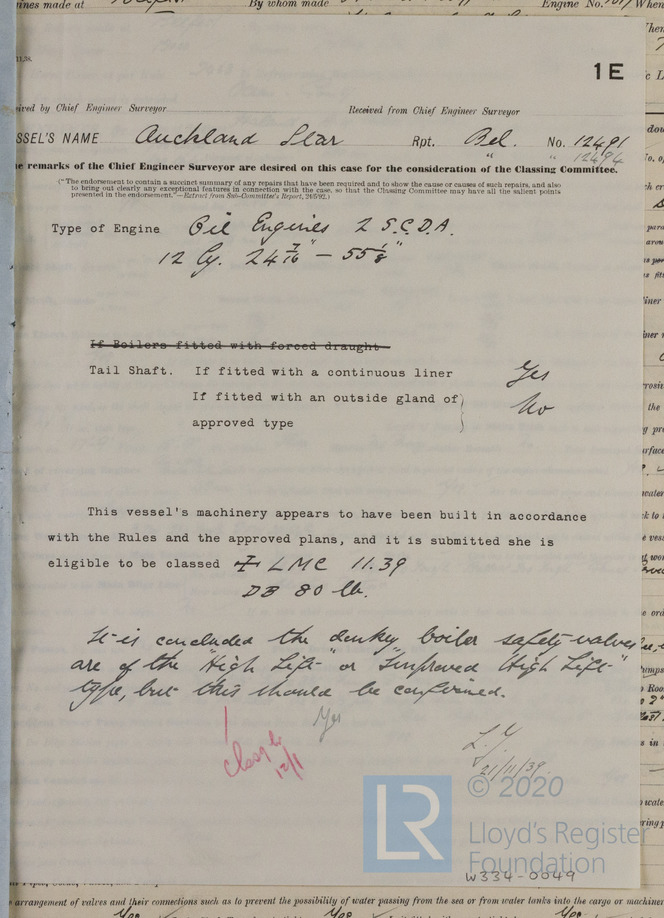 ines made at By whom made Engine No. When
11,38.
1E
ived by Chief Engineer Surveyor Received from Chief Engineer Surveyor
SSEL'S NAME Auckland Star Rpt. Bel. No. 12491
" " 12494
e remarks of the Chief Engineer Surveyor are desired on this case for the consideration of the Classing Committee.
("The endorsement to contain a succinct summary of any repairs that have been required and to show the cause or causes of such repairs, and also
to bring out clearly any exceptional features in connection with the case, so that the Classing Committee may have all the salient points
presented in the endorsement."—Extract from Sub-Committee's Report, 24/5/92.)
Type of Engine Oil Engines 2 S.C.D.A.
12 Cy. 24 7/16" — 55 1/8"
If Boilers fitted with forced draught
Tail Shaft. If fitted with a continuous liner Yes
If fitted with an outside gland of} No
approved type
This vessel's machinery appears to have been built in accordance
with the Rules and the approved plans, and it is submitted she is
eligible to be classed ✠ LMC 11.39
DB 80 lb.
It is concluded the donkey boiler safety valves
are of the "High Lift" or "Improved High Lift"
type, but this should be confirmed.
Yes
12/1
L.Y.
21/11/39.
LR
© 2020
Lloyd's Register
Foundation
W334-0049
arrangement of valves and their connections such as to prevent the possibility of water passing from the sea or from water tanks into the cargo or machiner
Yes Yes Yes